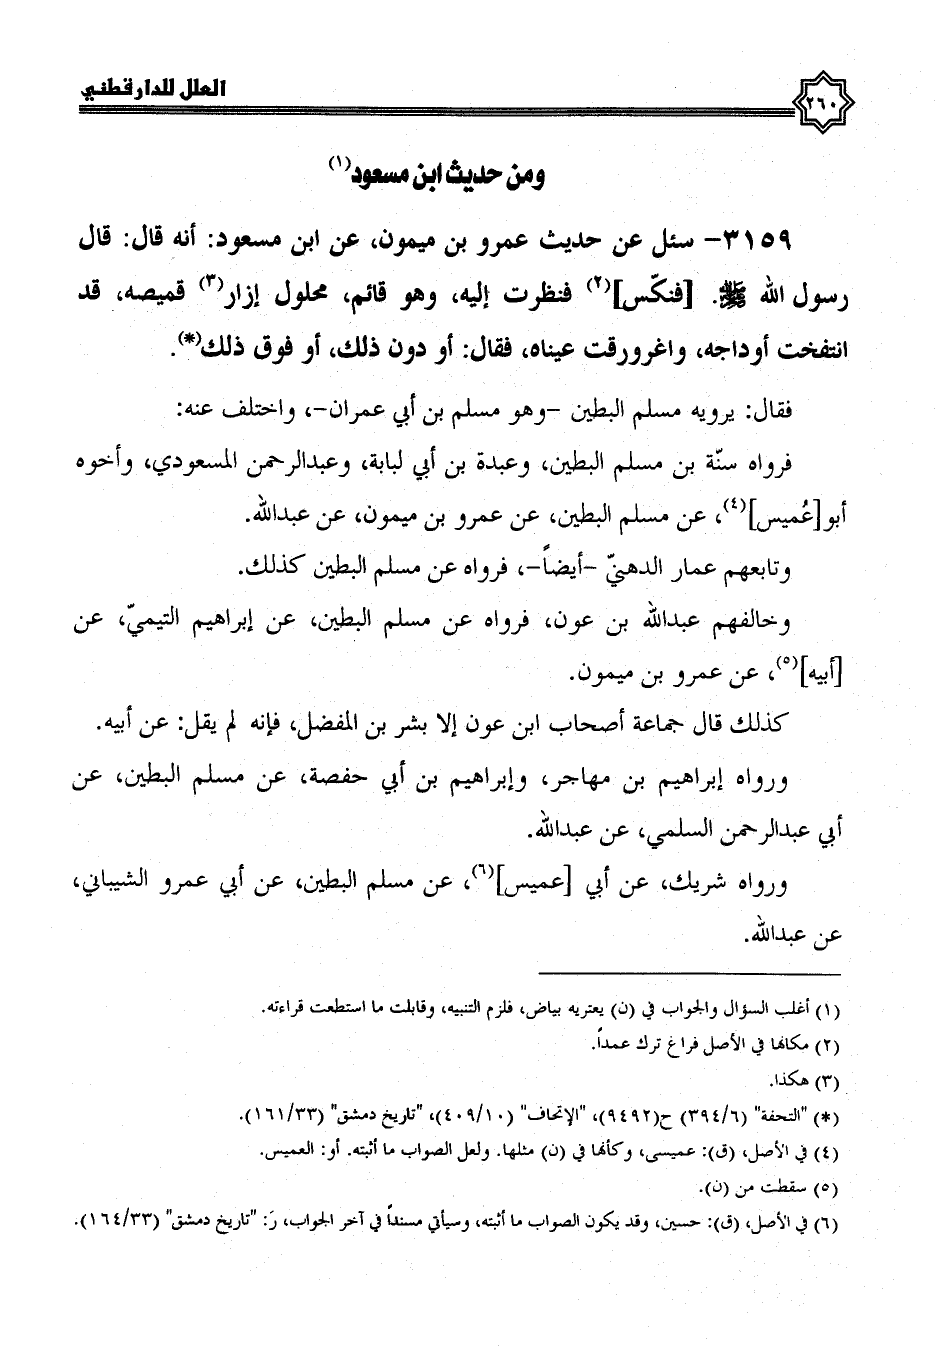 العلل للدارقطني
٢٦٠
ومن حديث ابن مسعود(١)
٣١٥٩- سئل عن حديث عمرو بن ميمون، عن ابن مسعود: أنه قال: قال
رسول الله ﷺ. [فنكّس](٢) فنظرت إليه، وهو قائم، محلول إزار(٣) قميصه، قد
انتفخت أوداجه، واغرورقت عيناه، فقال: أو دون ذلك، أو فوق ذلك(*).
فقال: يرويه مسلم البطين -وهو مسلم بن أبي عمران-، واختلف عنه:
فرواه سنّة بن مسلم البطين، وعبدة بن أبي لبابة، وعبدالرحمن المسعودي، وأخوه
أبو [عُميس](٤)، عن مسلم البطين، عن عمرو بن ميمون، عن عبدالله.
وتابعهم عمار الدهنيّ -أيضاً-، فرواه عن مسلم البطين كذلك.
وخالفهم عبدالله بن عون، فرواه عن مسلم البطين، عن إبراهيم التيميّ، عن
[أبيه](٥)، عن عمرو بن ميمون.
كذلك قال جماعة أصحاب ابن عون إلا بشر بن المفضل، فإنه لم يقل: عن أبيه.
ورواه إبراهيم بن مهاجر، وإبراهيم بن أبي حفصة، عن مسلم البطين، عن
أبي عبدالرحمن السلمي، عن عبدالله.
ورواه شريك، عن أبي [عميس](٦)، عن مسلم البطين، عن أبي عمرو الشيباني،
عن عبدالله.
(١) أغلب السؤال والجواب في (ن) يعتريه بياض، فلزم التنبيه، وقابلت ما استطعت قراءته.
(٢) مكانها في الأصل فراغ ترك عمداً.
(٣) هكذا.
(*) "التحفة" (٣٩٤/٦) ح(٩٤٩٢)، "الإتحاف" (٤٠٩/١٠)، "تاريخ دمشق" (١٦١/٣٣).
(٤) في الأصل، (ق): عميسى، وكأنها في (ن) مثلها. ولعل الصواب ما أثبته. أو: العميس.
(٥) سقطت من (ن).
(٦) في الأصل، (ق): حسين، وقد يكون الصواب ما أثبته، وسيأتي مسنداً في آخر الجواب، رَ: "تاريخ دمشق" (١٦٤/٣٣).